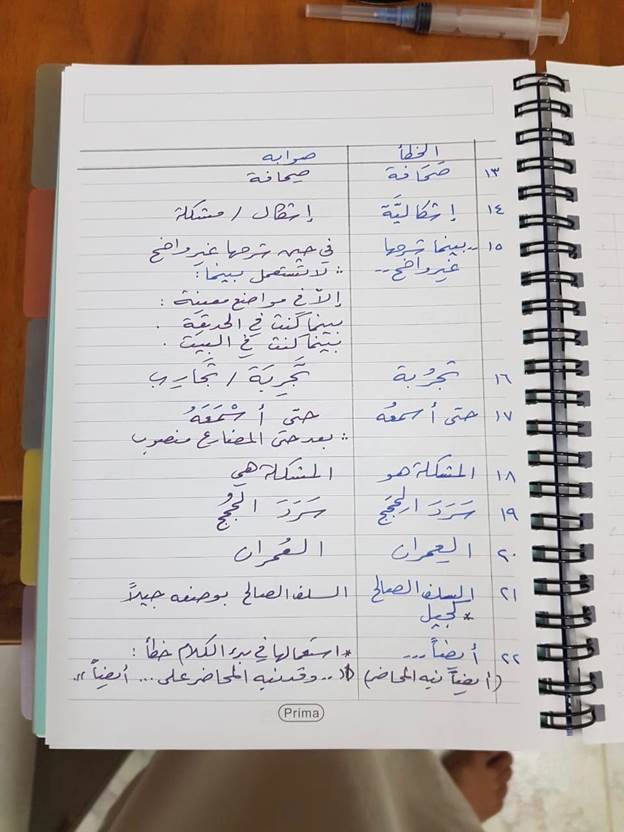 الخطأ صوابه
١٣ صَحَافة صِحافة
١٤ إشكاليَّة إشكال / مشكلة
١٥ ..بينما شرحها في حين شرحها غير واضح
غير واضح.. ∴ لا تُستعمل بينما:
إلاّ في مواضع معينة :
بينما كنت في الحديقة .
بينما كنت في البيت .
١٦ تجرُبة تَجرِبَة / تجارِب
١٧ حتى أسمعُه حتى أسْمَعَهُ
∴ بعد حتى المضارع منصوب
١٨ المشكلة هو المشكلة هي
١٩ سَرَدَ الحِجَج سَرَدَ الحُجَج
٢٠ العِمران العُمران
٢١ السلف الصالح السلف الصالح بوصفه جيلاً
* كجيل
٢٢ أيضاً... * استعمالها في بدء الكلام خطأ :
(أيضاً نبه المحاضر) ..وقد نبه المحاضر على ... أيضاً"
Prima